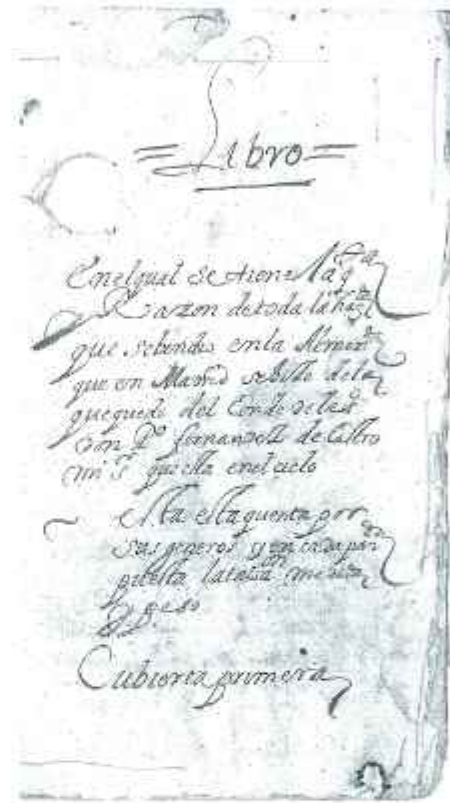 = Libro =
En el qual se tiene la q.ta
y Razon de toda la haz.da
que se bendio en la Almon.da
que en Madrid se hizo de lo
que quedo del Conde de lemos
Don P.o fernandez de Castro
mi s.r que esta en el cielo
Esta esta quenta por
sus generos y en cada par.da
puesta la tasa medida
y peso
Cubierta primera